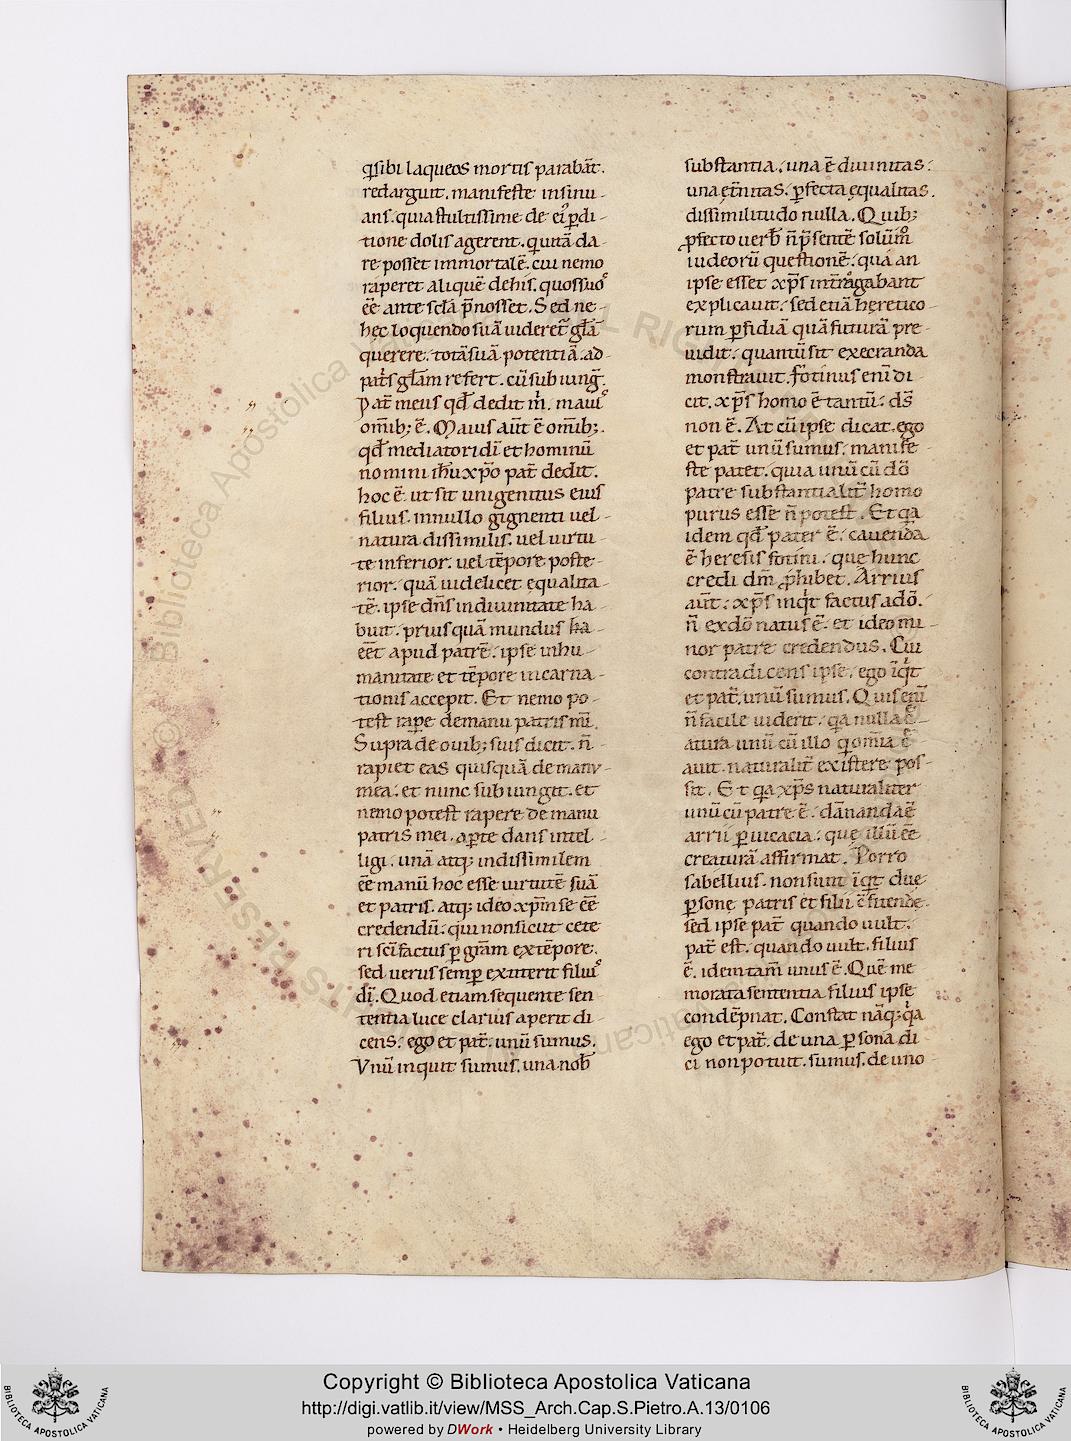 q̄ sibi laqueos mortis parabāt.
redarguit. manifeste insinu-
ans. quia stultissime de ei᾽ p̱di-
tione dolis agerent. qui uitā da-
re posset immortalē. cui nemo
raperet aliquē de his. quos suos
ēē ante sc̄la p̄nosset. Sed ne
hec loquendo suā uideret᷑ gl̄ā
querere. totā suā potentiā ad
pat̄s gl̄am refert. cū subiung̃.
Pat̃ meus qd̄ dedit m̄. maius
om̄ib; ē. Maius aūt ē om̄ib;.
qd̄ mediatori dī et hominū
nomini ih̄u xp̄o pat̃ dedit.
hoc ē. ut sit unigenitus eius
filius. in nullo gignenti uel
natura dissimilis. uel uirtu-
te inferior. uel tēpore poste-
rior. quā uidelicet ęqualita-
tē. ipse dn̄s in diuinitate ha-
buit. priusquā mundus ha-
ēēt apud patrē. ipse in hu-
manitate et tēpore incarna-
tionis accepit. Et nemo po-
test rape̱ de manu patris mī.
Supra de ouib; suis dicit. n̄
rapiet eas quisquā de manu
mea. et nunc subiungit. et
nemo potest rapere de manu
patris mei. ap̱te dans intel-
ligi. unā atq; indissimilem
ēē manū hoc esse uirtutē suā
et patris. atq; ideo xp̄m se ēē
credendū. qui non sicut cete
ri sc̄i factus p̱ gr̄am ex tēpore.
sed uerus semp̱ extiterit filius
dī. Quod etiam sequente sen-
tentia luce clarius aperit di-
cens: ego et pat̃. unū sumus.
Vnū inquit sumus. una nob̄
substantia. una ē diuinitas.
una ęt̃nitas. p̱fecta ęqualitas.
dissimilitudo nulla. Quib;
p̱fecto uerb̄ n̄ p̄sentē solūm̊
iudeorū questionē. quā an
ipse esset xp̄s int̃rogabant
explicauit. sed etiā heretico-
rum p̱fidiā quā futurā pre-
uidit. quantū sit execranda
monstrauit. Fotinus enī di
cit. xp̄s homo ē tantū. d̄s
non ē. At cū ipse dicat. ego
et pat̃ unū sumus. manife-
ste patet. quia unū cū dō
patre substantialit̃ homo
purus esse n̄ potest. Et q̱a
idem qd̄ pater ē. cauenda
ē heresis fotini. que hunc
credi dm̄ p̱hibet. Arrius
aūt. xp̄s inq̇t factus a dō.
n̄ ex dō natus ē. et ideo mi-
nor patre credendus. Cui
contradicens ipse. ego īq̇t
et pat̃. unū sumus. Quis enī
n̄ facile uiderit. q̱a nulla c̄-
atura unū cū illo q̱ om̄ia c̄-
auit. naturalit̃ existere pos-
sit. Et q̱a xp̄s naturaliter
unū cū patre ē. dānanda ē
arrii p̱uicacia. que illū ēē
creaturā affirmat. Porro
sabellius. non sunt īq̇t due
p̱sone patris et filii c̄ sitende.
sed ipse pat̃ quando uult.
pat̃ est. quando uult. filius
ē. idem tam̄ unus ē. Quē me
morata sententia filius ipse
condēpnat. Constat nāq; q̱a
ego et pat̃. de una p̱sona di
ci non potuit. sumus. de uno
Copyright © Biblioteca Apostolica Vaticana
http://digi.vatlib.it/view/MSS_Arch.Cap.S.Pietro.A.13/0106
powered by DWork • Heidelberg University Library